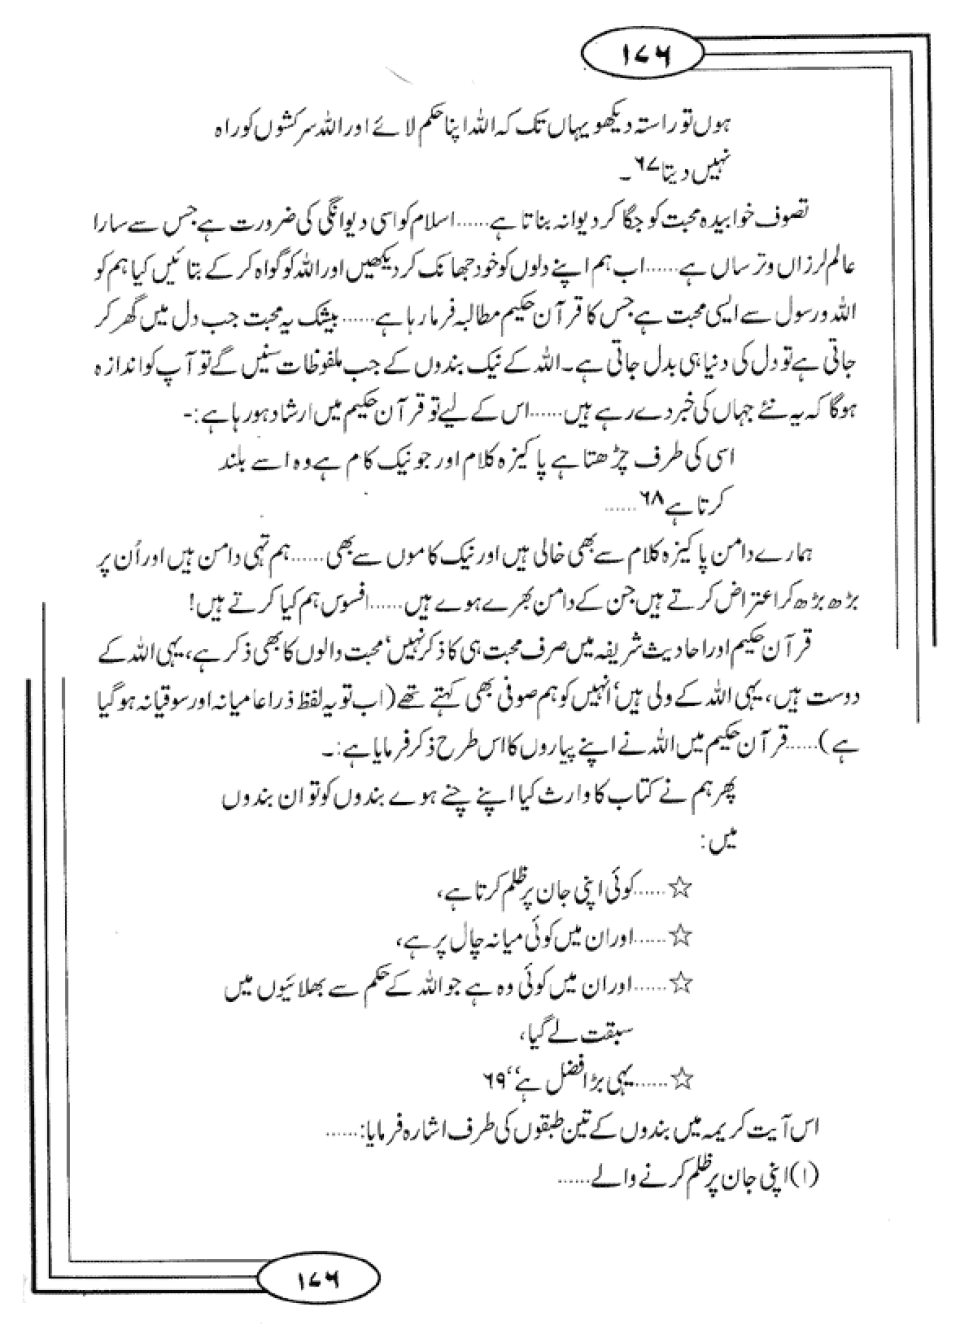 ۱۷۶
ہوں تو راستہ دیکھو یہاں تک کہ اللہ اپنا حکم لائے اور اللہ سرکشوں کو راہ
نہیں دیتا۶۷۔
تصوف خوابیدہ محبت کو جگا کر دیوانہ بناتا ہے......اسلام کو اسی دیوانگی کی ضرورت ہے جس سے سارا
عالم لرزاں وترساں ہے......اب ہم اپنے دلوں کو خود جھانک کر دیکھیں اور اللہ کو گواہ کر کے بتائیں کیا ہم کو
اللہ ورسول سے ایسی محبت ہے جس کا قرآن حکیم مطالبہ فرما رہا ہے......بیشک یہ محبت جب دل میں گھر کر
جاتی ہے تو دل کی دنیا ہی بدل جاتی ہے۔اللہ کے نیک بندوں کے جب ملفوظات سنیں گے تو آپ کو اندازہ
ہوگا کہ یہ نئے جہاں کی خبر دے رہے ہیں......اس کے لیے تو قرآن حکیم میں ارشاد ہو رہا ہے:-
اسی کی طرف چڑھتا ہے پاکیزہ کلام اور جو نیک کام ہے وہ اسے بلند
کرتا ہے۶۸......
ہمارے دامن پاکیزہ کلام سے بھی خالی ہیں اور نیک کاموں سے بھی......ہم تہی دامن ہیں اور اُن پر
بڑھ بڑھ کر اعتراض کرتے ہیں جن کے دامن بھرے ہوے ہیں......افسوس ہم کیا کرتے ہیں!
قرآن حکیم اور احادیث شریفہ میں صرف محبت ہی کا ذکر نہیں‘ محبت والوں کا بھی ذکر ہے، یہی اللہ کے
دوست ہیں، یہی اللہ کے ولی ہیں‘ انہیں کو ہم صوفی بھی کہتے تھے (اب تو یہ لفظ ذرا عامیانہ اور سوقیانہ ہوگیا
ہے)......قرآن حکیم میں اللہ نے اپنے پیاروں کا اس طرح ذکر فرمایا ہے:۔
پھر ہم نے کتاب کا وارث کیا اپنے چنے ہوے بندوں کو تو ان بندوں
میں:
☆......کوئی اپنی جان پر ظلم کرتا ہے،
☆......اور ان میں کوئی میانہ چال پر ہے،
☆......اور ان میں کوئی وہ ہے جو اللہ کے حکم سے بھلائیوں میں
سبقت لے گیا،
☆......یہی بڑا فضل ہے‘‘۶۹
اس آیت کریمہ میں بندوں کے تین طبقوں کی طرف اشارہ فرمایا:......
(۱) اپنی جان پر ظلم کرنے والے......
۱۷۶